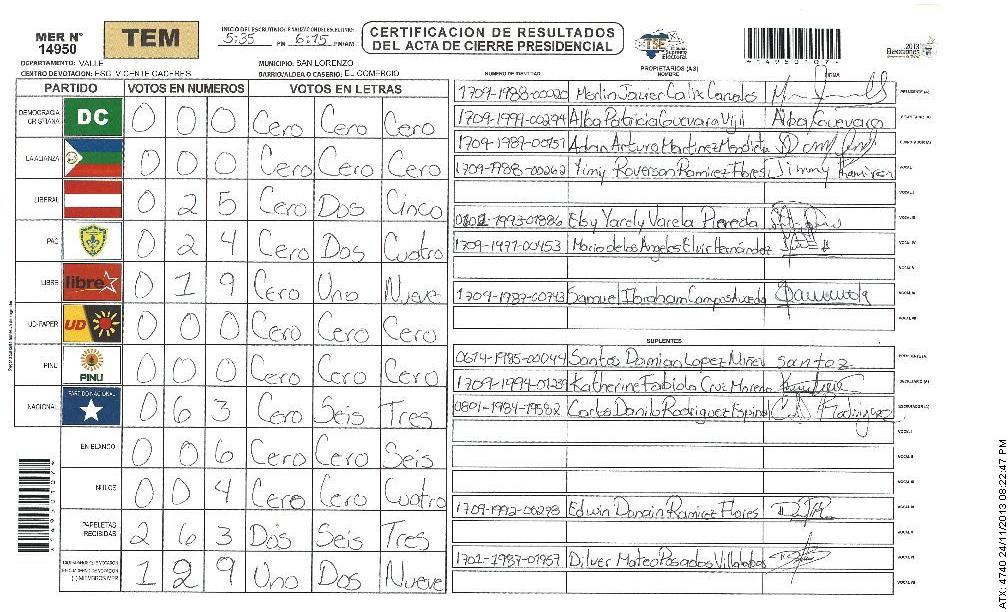 MER N° 14950
TEM
INICIO DEL ESCRUTINIO: FINALIZACION DEL ESCRUTINIO:
5:35 PM 6:15 PM/AM
CERTIFICACIÓN DE RESULTADOS
DEL ACTA DE CIERRE PRESIDENCIAL
TSE Tribunal Supremo Electoral
Elecciones 2013
DEPARTAMENTO: VALLE
MUNICIPIO: SAN LORENZO
CENTRO DE VOTACION: ESC. VICENTE CACERES
BARRIO/ALDEA O CASERIO: EL COMERCIO
PARTIDO VOTOS EN NUMEROS VOTOS EN LETRAS
DEMOCRACIA CRISTIANA DC 0 0 0 Cero Cero Cero
LA ALIANZA 0 0 0 Cero Cero Cero
LIBERAL 0 2 5 Cero Dos Cinco
PAC 0 2 4 Cero Dos Cuatro
LIBRE libre 0 1 9 Cero Uno Nueve
UD-FAPER UD 0 0 0 Cero Cero Cero
PINU PINU 0 0 0 Cero Cero Cero
NACIONAL PARTIDO NACIONAL 0 6 3 Cero Seis Tres
EN BLANCO 0 0 6 Cero Cero Seis
NULOS 0 0 4 Cero Cero Cuatro
PAPELETAS RECIBIDAS 2 6 3 Dos Seis Tres
1 2 9 Uno Dos Nueve
NUMERO DE IDENTIDAD PROPIETARIOS (AS) NOMBRE FIRMA
1709-1988-00020 Merlin Javier Calix Canales PRESIDENTE (A)
1709-1994-00294 Alba Patricia Guevara Vijil Alba Guevara SECRETARIO (A)
1709-1987-00151 Adan Arturo Martinez Mendida ESCRUTADOR (A)
1709-1988-00262 Yimy Roverson Ramirez Flores Jimmy Ramirez VOCAL I
VOCAL II
1993-01886 Elsy Yarely Varela Pereda VOCAL III
1709-1977-00453 Maria de los Angeles Elvir Hernández VOCAL IV
VOCAL V
1709-1987-00743 Samuel Ibraham Campos VOCAL VI
VOCAL VII
SUPLENTES
0614-1985-00044 Santos Damian Lopez santoz PRESIDENTE (A)
1709-1994-01239 Katherine Fabiola Cruz Moreno SECRETARIO (A)
0801-1984-19582 Carlos Danilo Rodriguez Espinal ESCRUTADOR (A)
VOCAL I
VOCAL II
VOCAL III
1709-1992-00278 Edwin Ramirez Flores VOCAL IV
VOCAL V
1701-1987-01957 Dilver Mateo Posados Villalobos VOCAL VI
VOCAL VII
ATX: 4740 24/11/2013 08:22:47 PM